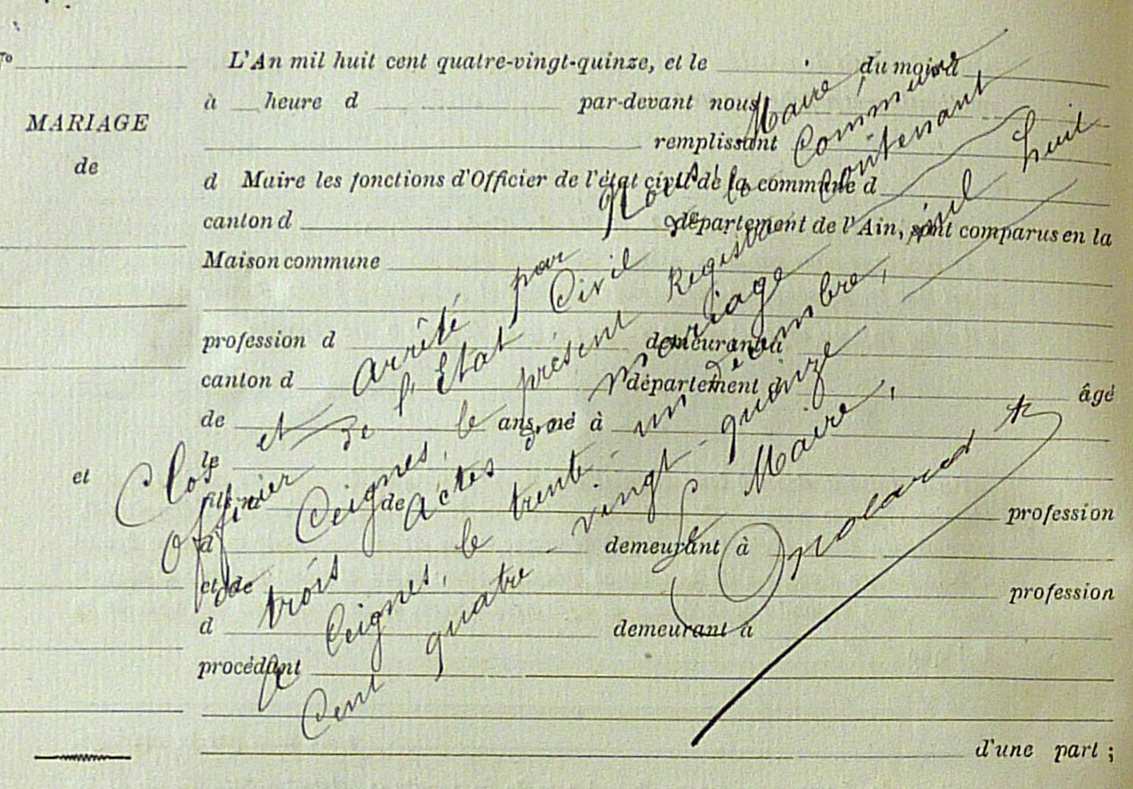 N°
L'An mil huit cent quatre-vingt-quinze, et le du mois d
à heure d par-devant nous
MARIAGE
remplissant
de
d Maire les fonctions d'Officier de l'état civil de la commune d
canton d département de l'Ain, sont comparus en la
Maison commune
profession d demeurant à
canton d département d âgé
de ans, né à
et
le
fils de
de profession
d demeurant à
et de profession
d demeurant à
procédant
d'une part ;
Clos et arrêté par Nous, Maire,
Officier de l'État Civil de la Commune
de Ceignes, le présent Registre contenant
trois Actes de mariage
A Ceignes, le trente-un décembre, mil huit
Cent quatre-vingt-quinze
Le Maire,